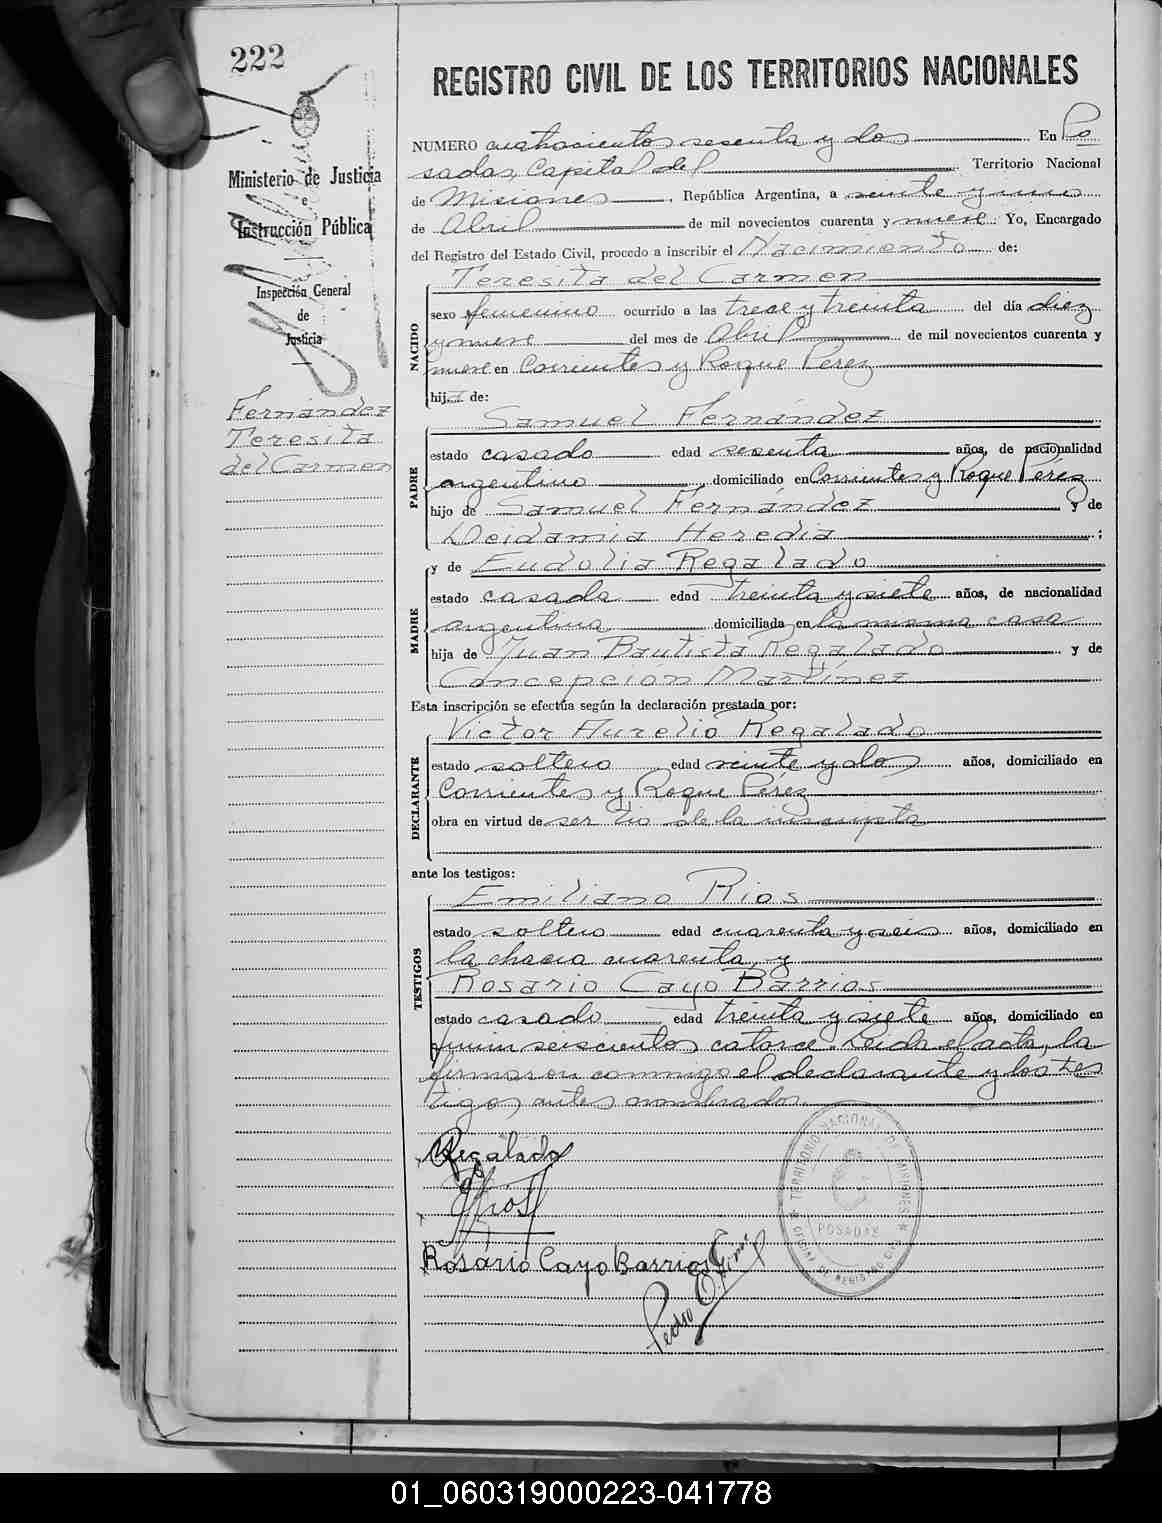 222
REGISTRO CIVIL DE LOS TERRITORIOS NACIONALES
Ministerio de Justicia
e
Instrucción Pública
Inspección General
de
Justicia
Fernández
Teresita
del Carmen
NUMERO cuatrocientos sesenta y dos En Po
sadas, Capital del Territorio Nacional
de Misiones, República Argentina, a veinte y
de Abril de mil novecientos cuarenta y nueve Yo, Encargado
del Registro del Estado Civil, procedo a inscribir el Nacimiento de:
NACIDO
Teresita del Carmen
sexo femenino ocurrido a las trece y treinta del día diez
y nueve del mes de Abril de mil novecientos cuarenta y
nueve en Corrientes y Roque Pérez
hija de:
PADRE
Samuel Fernández
estado casado edad sesenta años, de nacionalidad
argentino, domiciliado en Corrientes y Roque Pérez
hijo de Samuel Fernández y de
Deidamia Heredia;
MADRE
y de Eudolia Regalado
estado casada edad treinta y siete años, de nacionalidad
argentina domiciliada en la misma casa
hija de Juan Bautista Regalado y de
Concepción Martínez
Esta inscripción se efectúa según la declaración prestada por:
DECLARANTE
Victor Aurelio Regalado
estado soltero edad veinte y dos años, domiciliado en
Corrientes y Roque Pérez
obra en virtud de ser tío de la inscripta
ante los testigos:
TESTIGOS
Emiliano Rios
estado soltero edad cuarenta y seis años, domiciliado en
la chacra cuarenta, y
Rosario Cayo Barrios
estado casado edad treinta y siete años, domiciliado en
Junin seiscientos catorce. Leida el acta, la
firmaron conmigo el declarante y los tes
tigos antes nombrados.
Regalado
Rios
Rosario Cayo Barrios
Pedro
TERRITORIO NACIONAL DE MISIONES
POSADAS
OFICINA DE REGISTRO CIVIL
01_060319000223-041778